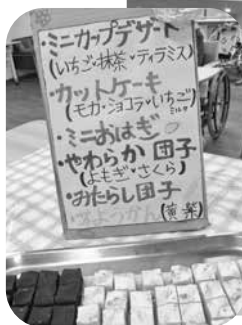 ・ミニカップデザート
(いちご・抹茶・ティラミス)
・カットケーキ
(モカ・ショコラ・いちご)
ミルク
・ミニおはぎ
・やわらか団子
(よもぎ・さくら)
・みたらし団子
ようかん(黄 紫)